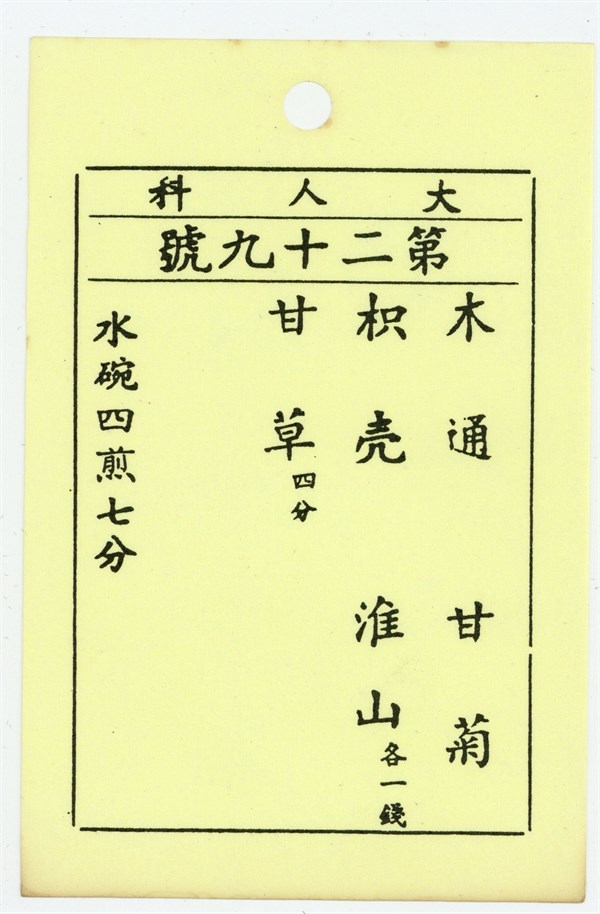 大人科
第二十九號
木通　甘菊
枳壳　淮山各一錢
甘草四分
水碗四煎七分